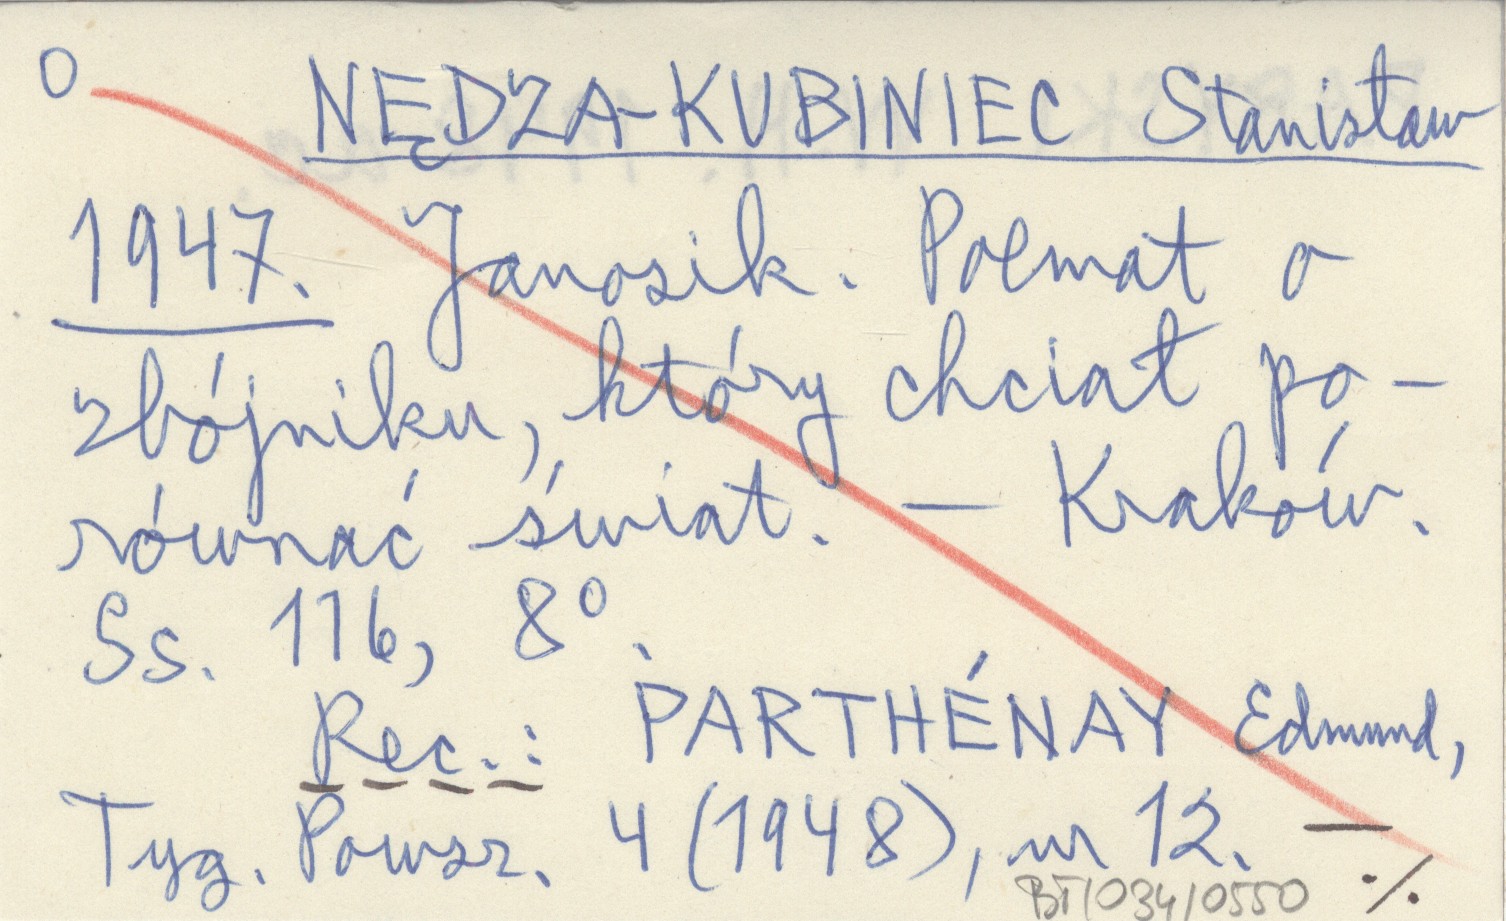 0 NĘDZA-KUBINIEC Stanisław
1947. Janosik. Poemat o
zbójniku, który chciał po-
równać świat. — Kraków.
Ss. 116, 8⁰.
Rec.: PARTHÉNAY Edmund,
Tyg. Powsz. 4 (1948), nr 12. —
BT/034/0550 ./.